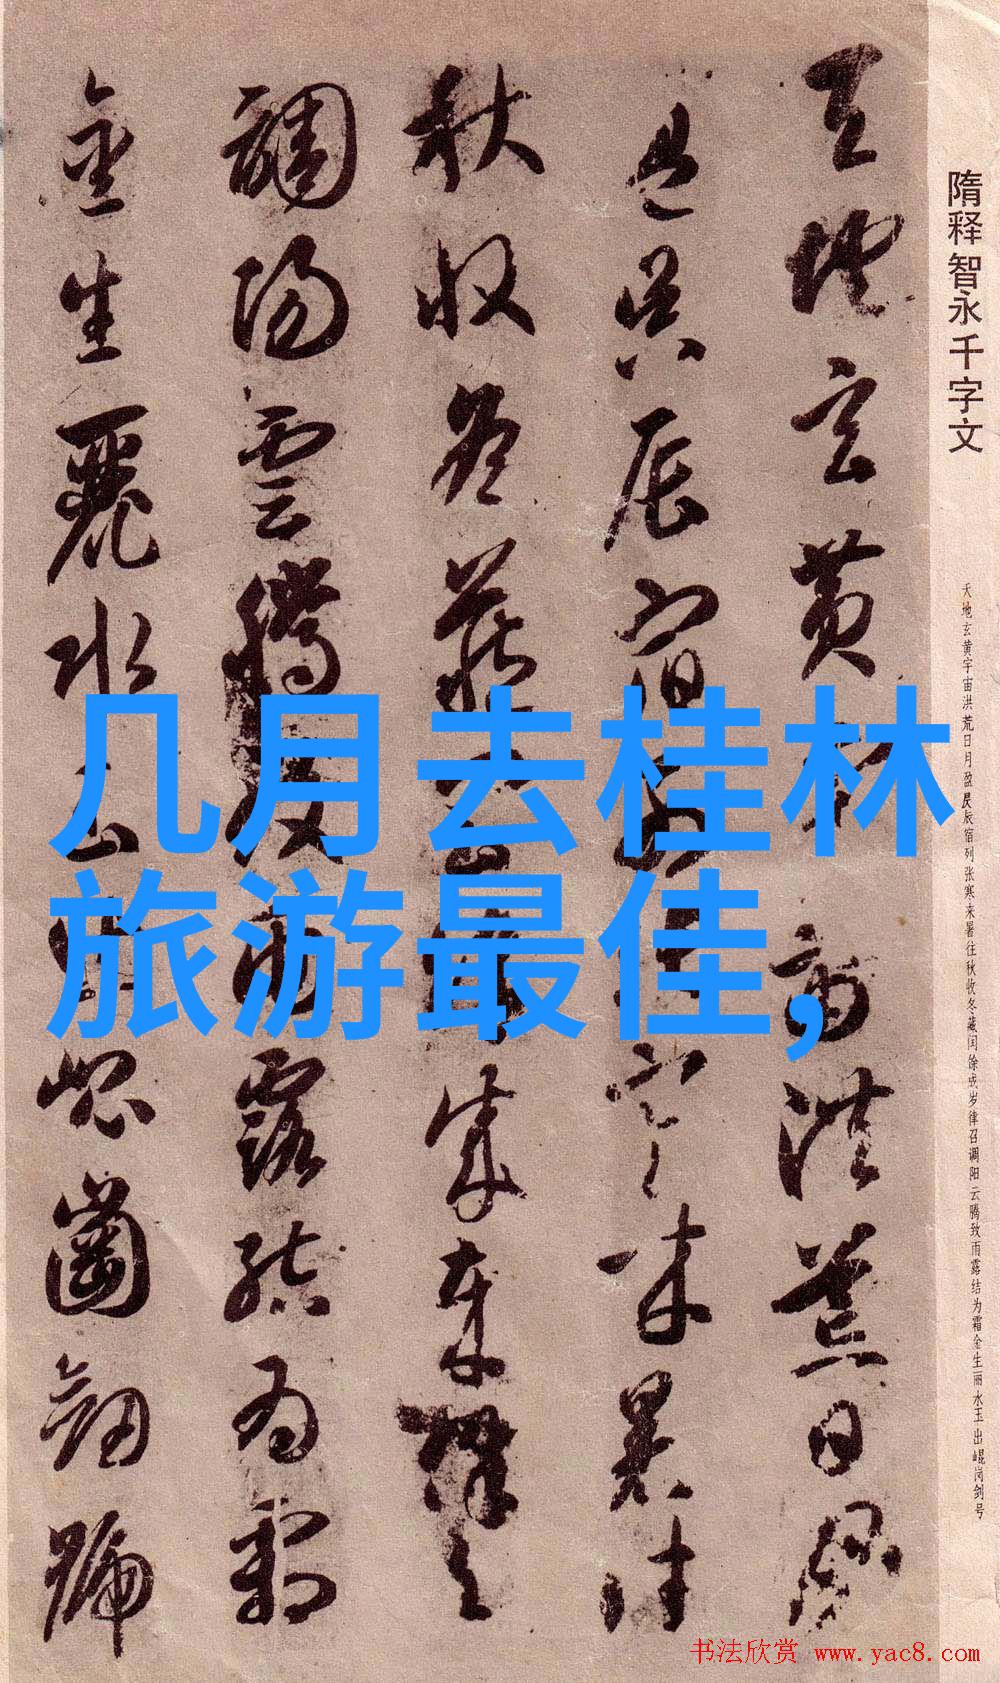 隋释智永千字文
天地玄黄宇宙洪荒日月盈昃辰宿列张寒来暑往秋收冬藏闰馀成岁律召调阳云腾致雨露结为霜金生丽水玉出崐岗剑号
天地玄黄宙洪荒日月
盈昃辰宿寒来暑往
秋收冬藏成歲律召
調陽雲騰致雨露結為霜
金生麗水玉出崐崗劒號
几月去桂林
旅游最佳,
书法欣赏 www.yac8.com